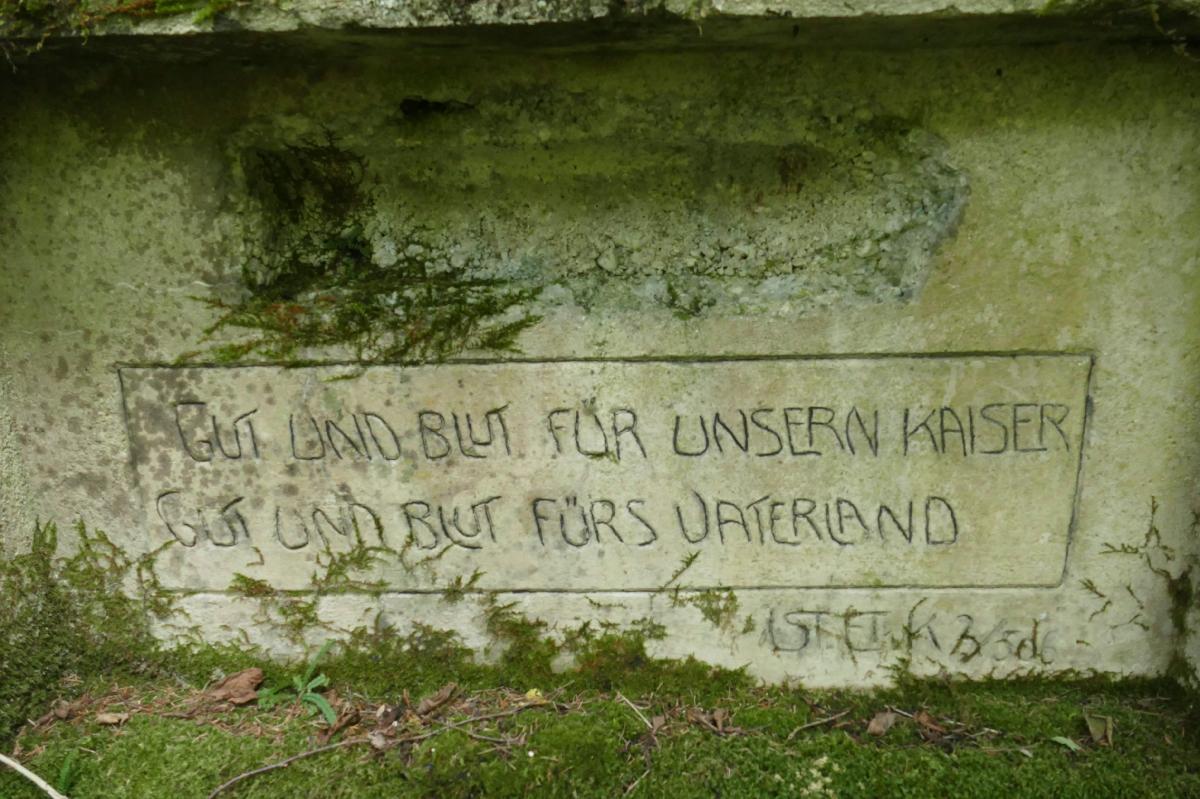 GUT UND BLUT FÜR UNSERN KAISER
GUT UND BLUT FÜRS VATERLAND